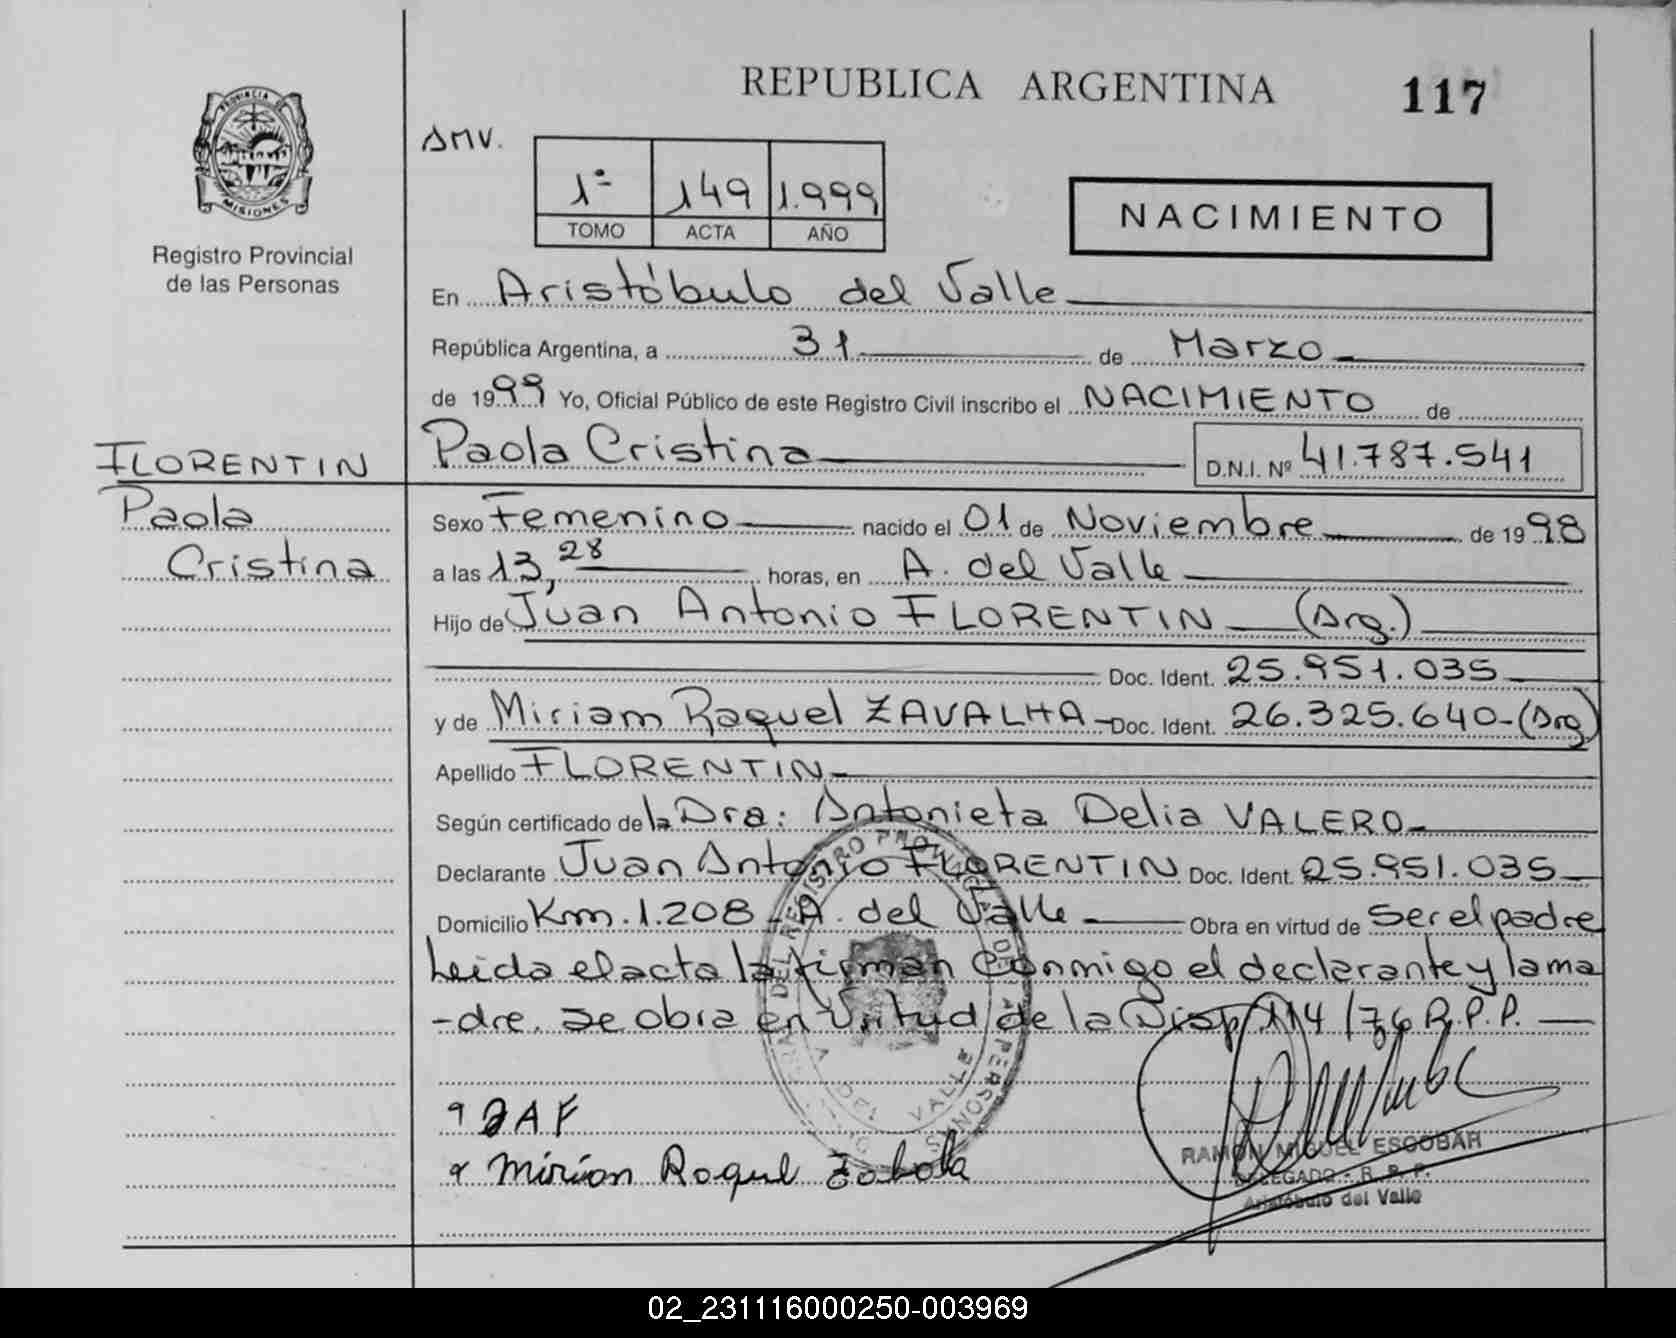 REPUBLICA ARGENTINA
117
PROVINCIA DE
MISIONES
Registro Provincial
de las Personas
SMV.
1º 149 1.999
TOMO ACTA AÑO
NACIMIENTO
En Aristóbulo del Valle
República Argentina, a 31 de Marzo
de 1999 Yo, Oficial Público de este Registro Civil inscribo el NACIMIENTO de
FLORENTIN
Paola
Cristina
Paola Cristina D.N.I. Nº 41.787.541
Sexo Femenino nacido el 01 de Noviembre de 1998
a las 13,28 horas, en A. del Valle
Hijo de Juan Antonio FLORENTIN (Arg.)
Doc. Ident. 25.951.035
y de Miriam Raquel ZAVALHA Doc. Ident. 26.325.640-(Arg)
Apellido FLORENTIN
Según certificado de la Dra: Antonieta Delia VALERO
Declarante Juan Antonio FLORENTIN Doc. Ident. 25.951.035
Domicilio Km. 1.208 - A. del Valle Obra en virtud de ser el padre
Leida el acta la firman conmigo el declarante y la ma
-dre. Se obra en virtud de la Disp. 114/76 R.P.P.
JAF
RAMON MIGUEL ESCOBAR
DELEGADO - R. P. P.
Aristóbulo del Valle
02_231116000250-003969